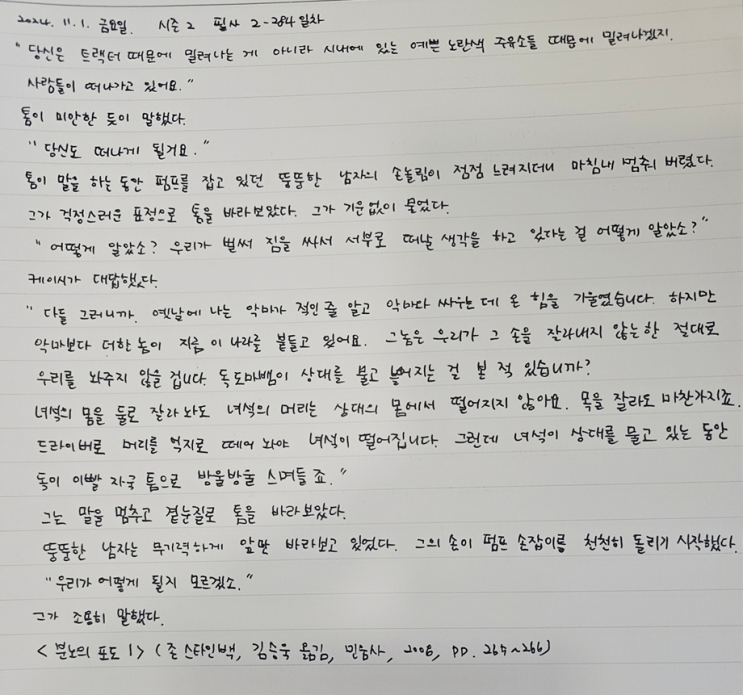 2024. 11. 1. 금요일. 시즌 2 필사 2-284일차
"당신은 트랙터 때문에 밀려나는 게 아니라 시내에 있는 예쁜 노란색 주유소들 때문에 밀려나겠지.
사람들이 떠나가고 있어요."
톰이 미안한 듯이 말했다.
"당신도 떠나게 될거요."
톰이 말을 하는 동안 펌프를 잡고 있던 뚱뚱한 남자의 손놀림이 점점 느려지더니 마침내 멈춰 버렸다.
그가 걱정스러운 표정으로 톰을 바라보았다. 그가 기운없이 물었다.
"어떻게 알았소? 우리가 벌써 짐을 싸서 서부로 떠날 생각을 하고 있다는 걸 어떻게 알았소?"
케이시가 대답했다.
"다들 그러니까. 옛날에 나는 악마가 적인 줄 알고 악마와 싸우는 데 온 힘을 기울였습니다. 하지만
악마보다 더한 놈이 지금 이 나라를 붙들고 있어요. 그놈은 우리가 그 손을 잘라내지 않는한 절대로
우리를 놔주지 않을 겁니다. 독도마뱀이 상대를 물고 늘어지는 걸 본 적 있습니까?
녀석의 몸을 둘로 잘라 놔도 녀석의 머리는 상대의 몸에서 떨어지지 않아요. 목을 잘라도 마찬가지죠.
드라이버로 머리를 억지로 떼어 놔야 녀석이 떨어집니다. 그런데 녀석이 상대를 물고 있는 동안
독이 이빨 자국 틈으로 방울방울 스며들죠."
그는 말을 멈추고 곁눈질로 톰을 바라보았다.
뚱뚱한 남자는 무기력하게 앞만 바라보고 있었다. 그의 손이 펌프 손잡이를 천천히 돌리기 시작했다.
"우리가 어떻게 될지 모르겠소."
그가 조용히 말했다.
<분노의 포도 1> (존 스타인백, 김승욱 옮김, 민음사, 2008, pp. 265~266)